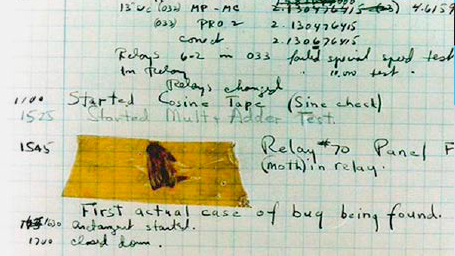 13"uc (032) MP - MC 4.6159
(033) PRO 2 2.130476415
conut 2.130676415
Relays 6-2 in 033 failed special speed test
In Relay 11,000 test.
Relays changed
1100 Started Cosine Tape (Sine check)
1525 Started Mult + Adder Test.
1545 Relay #70 Panel F
(moth) in relay.
First actual case of bug being found.
1630 antangent started.
1700 closed down.